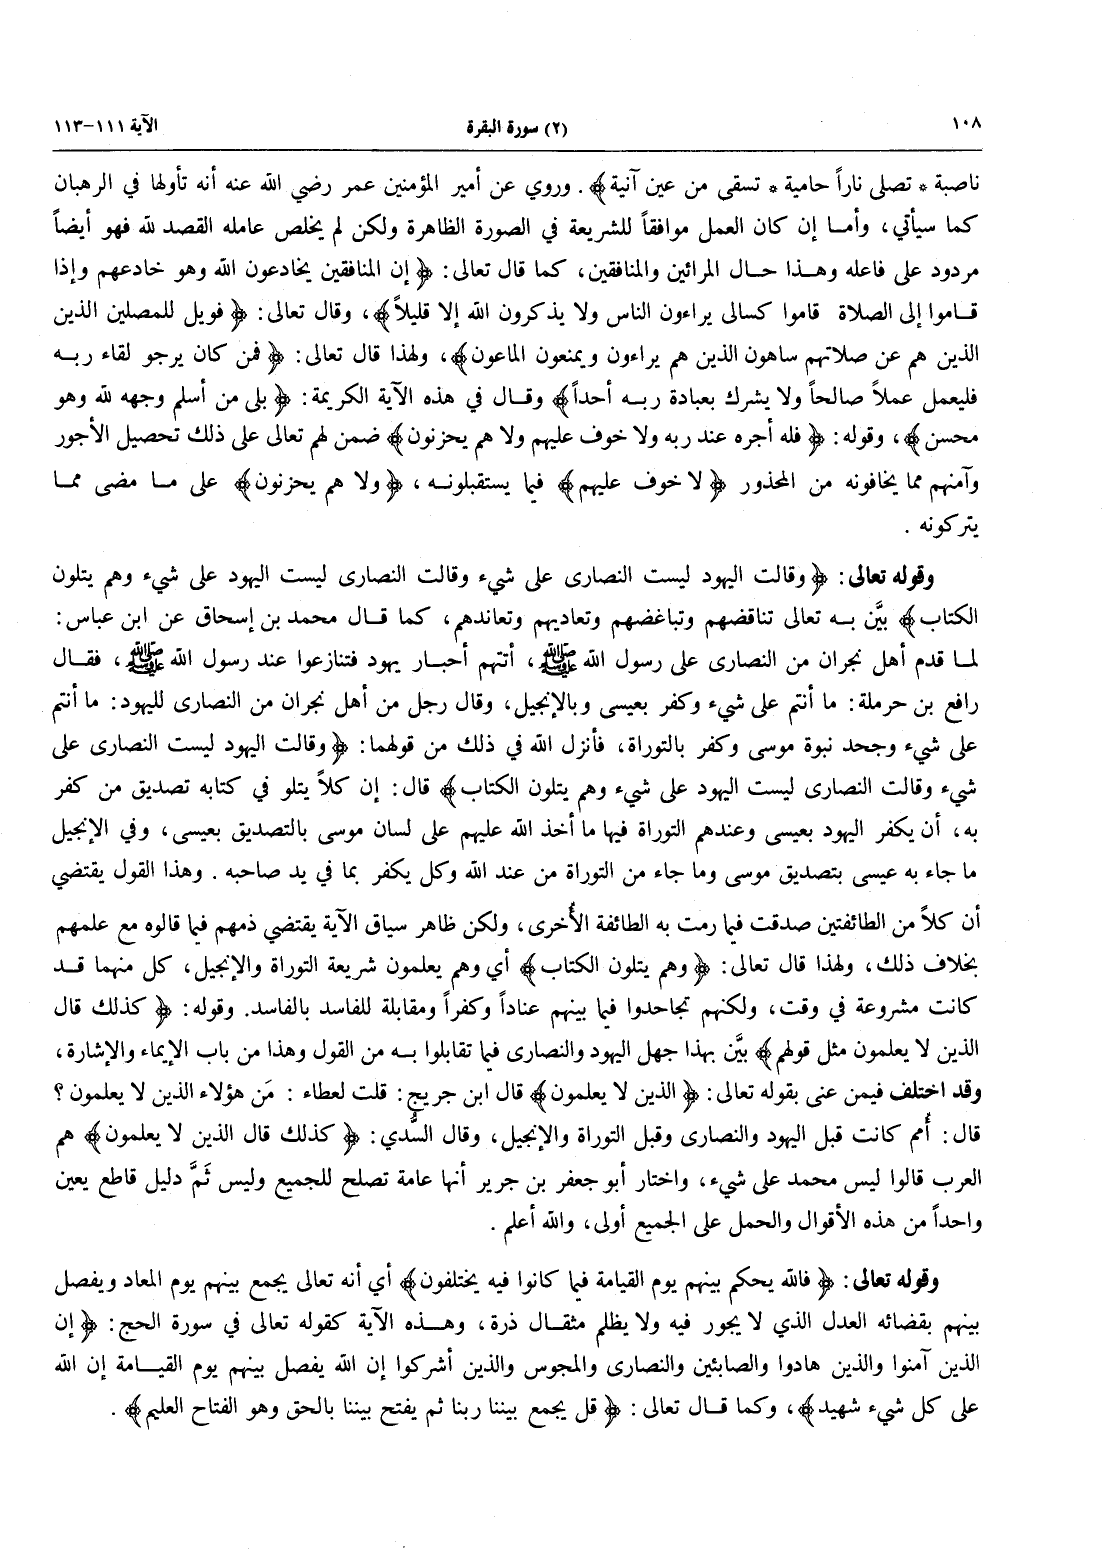 ١٠٨ (٢) سورة البقرة الآية ١١١-١١٣
ناصبة * تصلى ناراً حامية * تسقى من عين آنية﴾ . وروي عن أمير المؤمنين عمر رضي الله عنه أنه تأولها في الرهبان
كما سيأتي، وأما إن كان العمل موافقاً للشريعة في الصورة الظاهرة ولكن لم يخلص عامله القصد لله فهو أيضاً
مردود على فاعله وهذا حال المرائين والمنافقين، كما قال تعالى: ﴿ إن المنافقين يخادعون الله وهو خادعهم وإذا
قاموا إلى الصلاة قاموا كسالى يراءون الناس ولا يذكرون الله إلا قليلاً﴾، وقال تعالى: ﴿ فويل للمصلين الذين
الذين هم عن صلاتهم ساهون الذين هم يراءون ويمنعون الماعون﴾، ولهذا قال تعالى: ﴿ فمن كان يرجو لقاء ربه
فليعمل عملاً صالحاً ولا يشرك بعبادة ربه أحداً﴾ وقال في هذه الآية الكريمة: ﴿ بلى من أسلم وجهه لله وهو
محسن﴾، وقوله: ﴿ فله أجره عند ربه ولا خوف عليهم ولا هم يحزنون﴾ ضمن لهم تعالى على ذلك تحصيل الأجور
وآمنهم مما يخافونه من المحذور ﴿ لا خوف عليهم﴾ فيما يستقبلونه ، ﴿ ولا هم يحزنون﴾ على ما مضى مما
يتركونه .
وقوله تعالى: ﴿ وقالت اليهود ليست النصارى على شيء وقالت النصارى ليست اليهود على شيء وهم يتلون
الكتاب﴾ بيَّن به تعالى تناقضهم وتباغضهم وتعاديهم وتعاندهم، كما قال محمد بن إسحاق عن ابن عباس:
لما قدم أهل نجران من النصارى على رسول الله ﷺ، أتتهم أحبار يهود فتنازعوا عند رسول الله ﷺ، فقال
رافع بن حرملة: ما أنتم على شيء وكفر بعيسى وبالإنجيل، وقال رجل من أهل نجران من النصارى لليهود: ما أنتم
على شيء وجحد نبوة موسى وكفر بالتوراة، فأنزل الله في ذلك من قولهما: ﴿ وقالت اليهود ليست النصارى على
شيء وقالت النصارى ليست اليهود على شيء وهم يتلون الكتاب﴾ قال: إن كلاً يتلو في كتابه تصديق من كفر
به، أن يكفر اليهود بعيسى وعندهم التوراة فيها ما أخذ الله عليهم على لسان موسى بالتصديق بعيسى، وفي الإنجيل
ما جاء به عيسى بتصديق موسى وما جاء من التوراة من عند الله وكل يكفر بما في يد صاحبه . وهذا القول يقتضي
أن كلاً من الطائفتين صدقت فيما رمت به الطائفة الأُخرى، ولكن ظاهر سياق الآية يقتضي ذمهم فيما قالوه مع علمهم
بخلاف ذلك، ولهذا قال تعالى: ﴿ وهم يتلون الكتاب﴾ أي وهم يعلمون شريعة التوراة والإنجيل، كل منهما قد
كانت مشروعة في وقت، ولكنهم تجاحدوا فيما بينهم عناداً وكفراً ومقابلة للفاسد بالفاسد. وقوله: ﴿ كذلك قال
الذين لا يعلمون مثل قولهم﴾ بيَّن بهذا جهل اليهود والنصارى فيما تقابلوا به من القول وهذا من باب الإيماء والإشارة،
وقد اختلف فيمن عنى بقوله تعالى: ﴿ الذين لا يعلمون﴾ قال ابن جريج: قلت لعطاء : مَن هؤلاء الذين لا يعلمون ؟
قال: أُمم كانت قبل اليهود والنصارى وقبل التوراة والإنجيل، وقال السُّدي: ﴿ كذلك قال الذين لا يعلمون﴾ هم
العرب قالوا ليس محمد على شيء، واختار أبو جعفر بن جرير أنها عامة تصلح للجميع وليس ثَمَّ دليل قاطع يعين
واحداً من هذه الأقوال والحمل على الجميع أولى، والله أعلم .
وقوله تعالى: ﴿ فالله يحكم بينهم يوم القيامة فيما كانوا فيه يختلفون﴾ أي أنه تعالى يجمع بينهم يوم المعاد ويفصل
بينهم بقضائه العدل الذي لا يجور فيه ولا يظلم مثقال ذرة، وهذه الآية كقوله تعالى في سورة الحج: ﴿ إن
الذين آمنوا والذين هادوا والصابئين والنصارى والمجوس والذين أشركوا إن الله يفصل بينهم يوم القيامة إن الله
على كل شيء شهيد﴾، وكما قال تعالى: ﴿ قل يجمع بيننا ربنا ثم يفتح بيننا بالحق وهو الفتاح العليم﴾ .